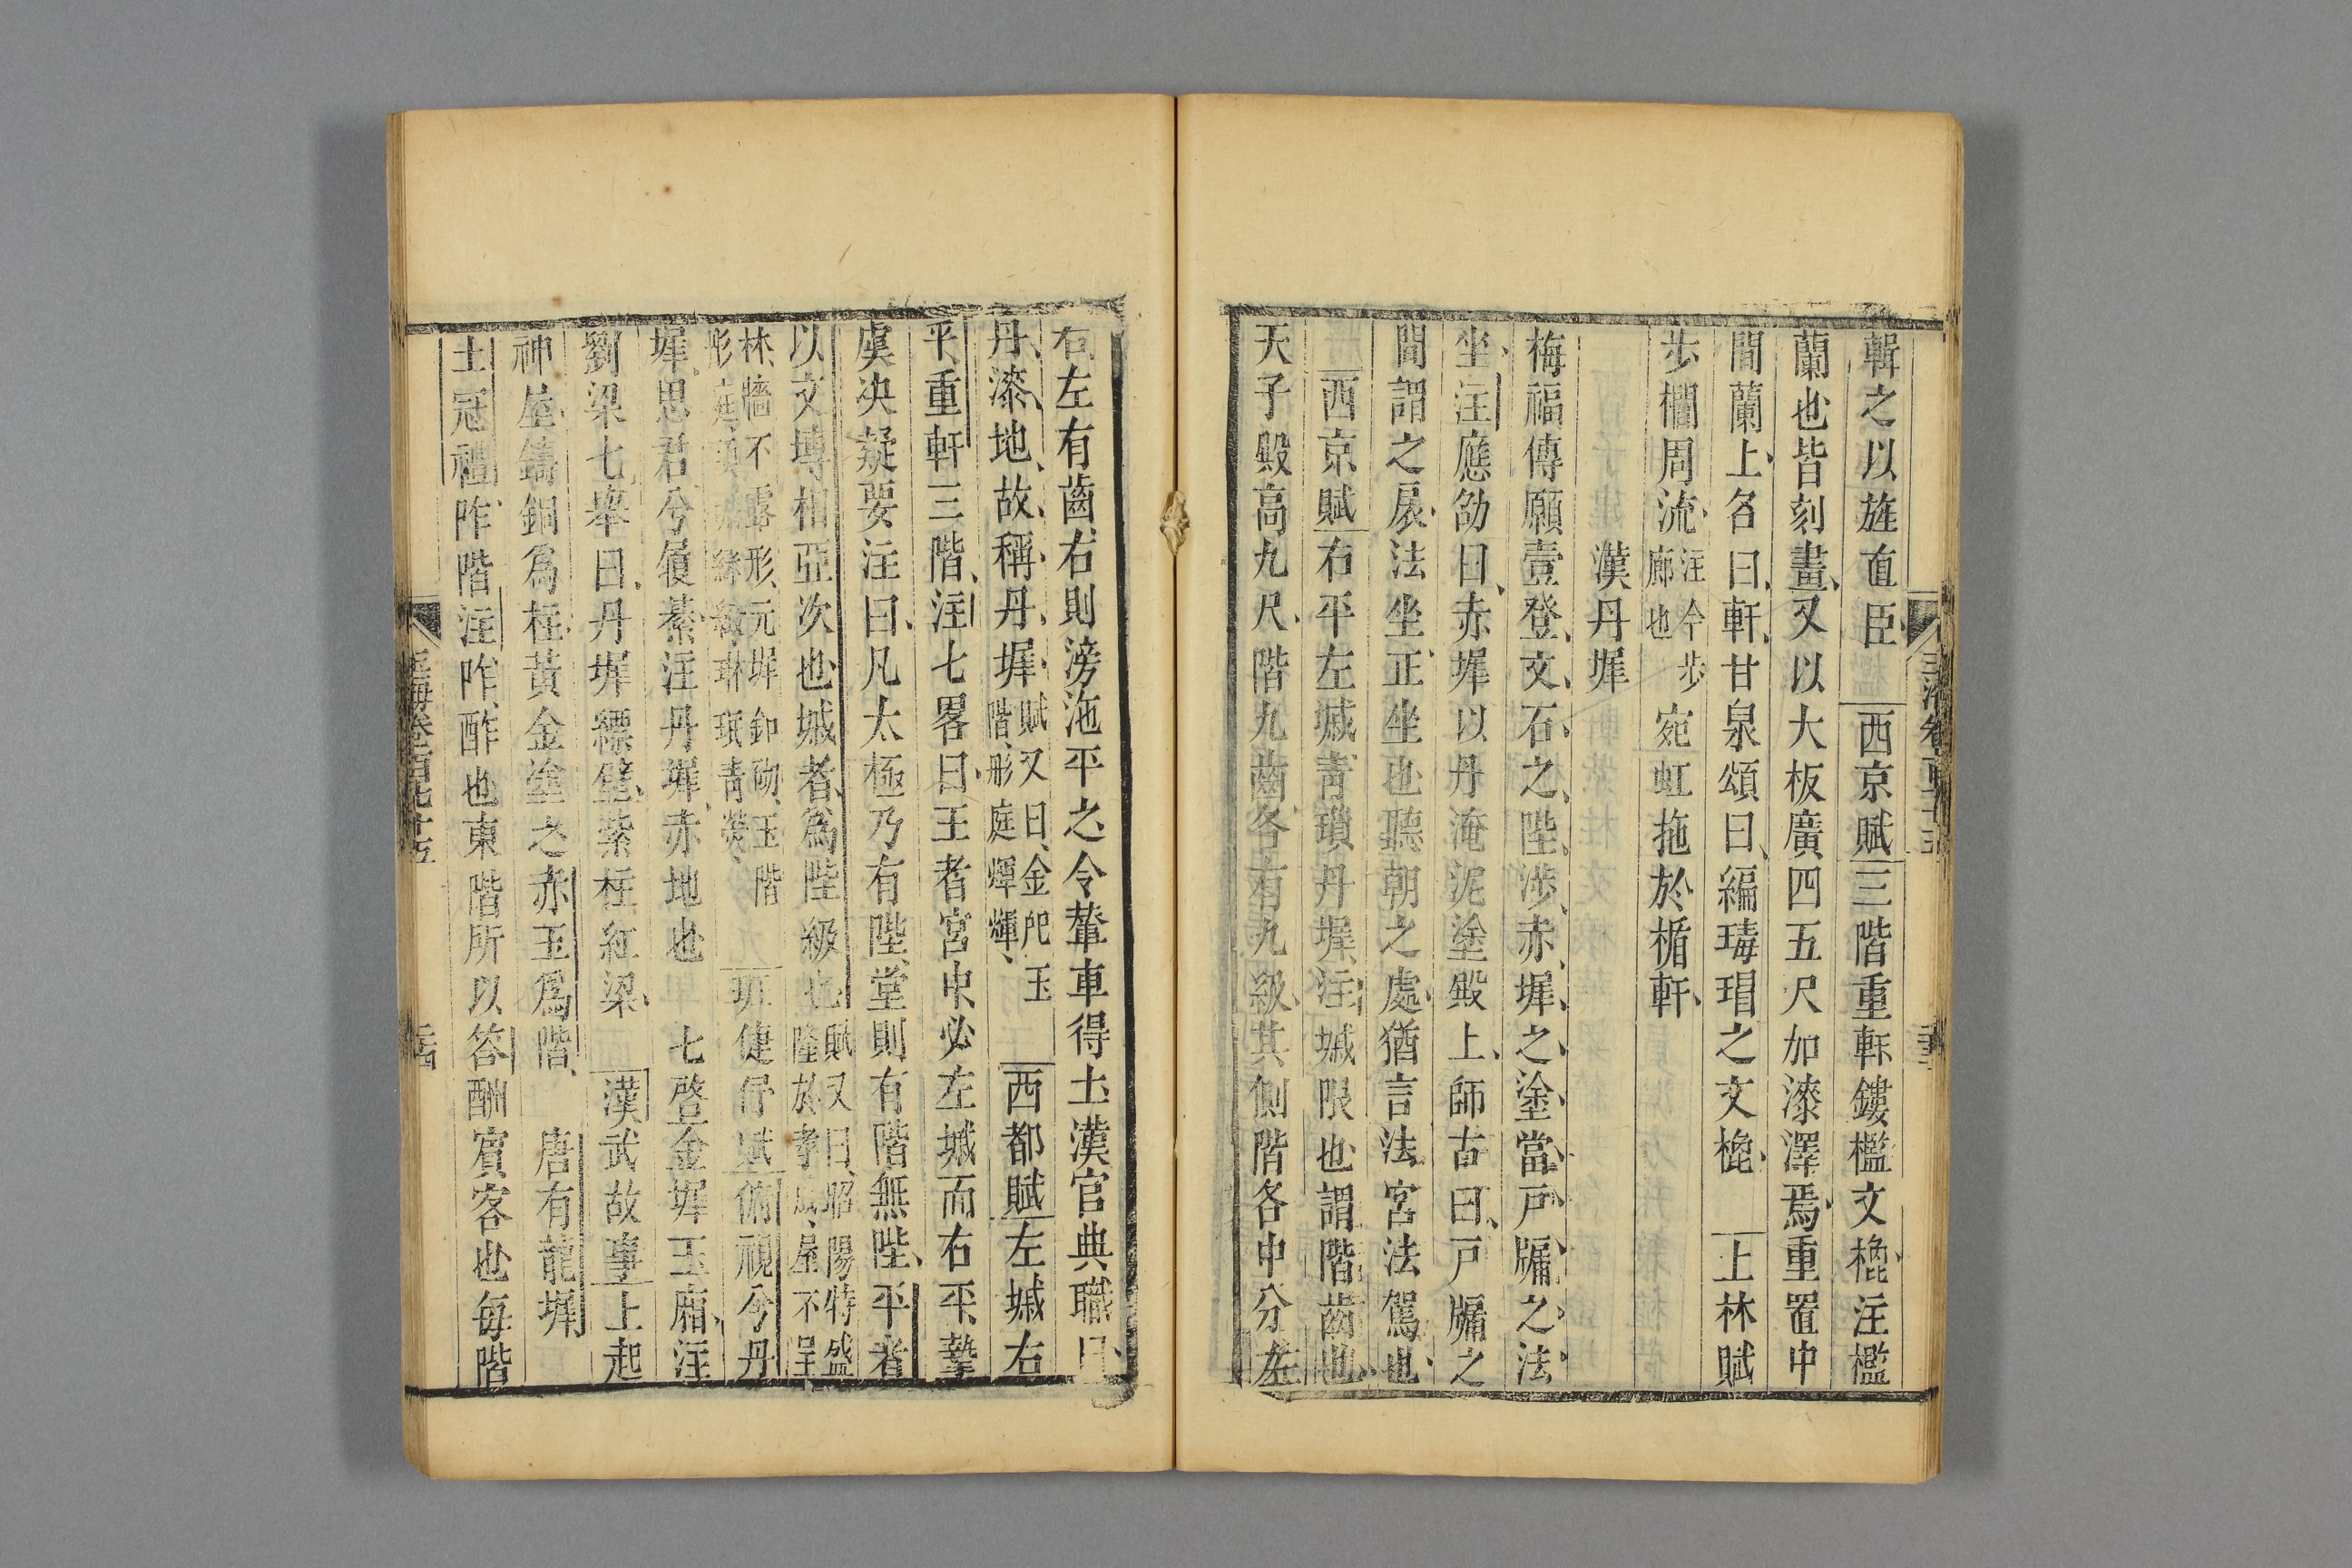 輯之以旌直臣 西京賦三階重軒鏤檻文㮰注檻
蘭也皆刻畫又以大板廣四五尺加漆澤焉重置中
間蘭上名曰軒甘泉頌曰編瑇瑁之文㮰 上林賦
步櫩周流注今步廊也宛虹拖於楯軒
漢丹墀
梅福傳願壹登文石之陛涉赤墀之塗當戶牖之法
坐注應劭曰赤墀以丹淹泥塗殿上師古曰戶牖之
間謂之扆法坐正坐也聽朝之處猶言法宮法駕也
西京賦右平左墄青瑣丹墀注墄限也謂階齒也
天子殿高九尺階九齒各有九級其側階各中分左
右左有齒右則滂沲平之令輦車得上漢官典職曰
丹漆地故稱丹墀賦又曰金戺玉階彤庭輝輝 西都賦左墄右
平重軒三階注七畧曰王者宮中必左墄而右平摯
虞决疑要注曰凡太極乃有陛堂則有階無陛平者
以文塼相亞次也墄者爲陛級也賦又曰昭陽特盛隆於孝成屋不呈
林牆不露形元墀釦砌玉階彤庭碝磩綵緻琳珉青熒 班倢伃賦俯視兮丹
墀思君兮履綦注丹墀赤地也 七啓金墀玉廂注
劉梁七舉曰丹墀縹壁紫柱紅梁 漢武故事上起
神屋鑄銅爲柱黃金塗之赤玉爲階 唐有龍墀
士冠禮阼階注阼酢也東階所以答酬賓客也每階
玉海卷一百六十五